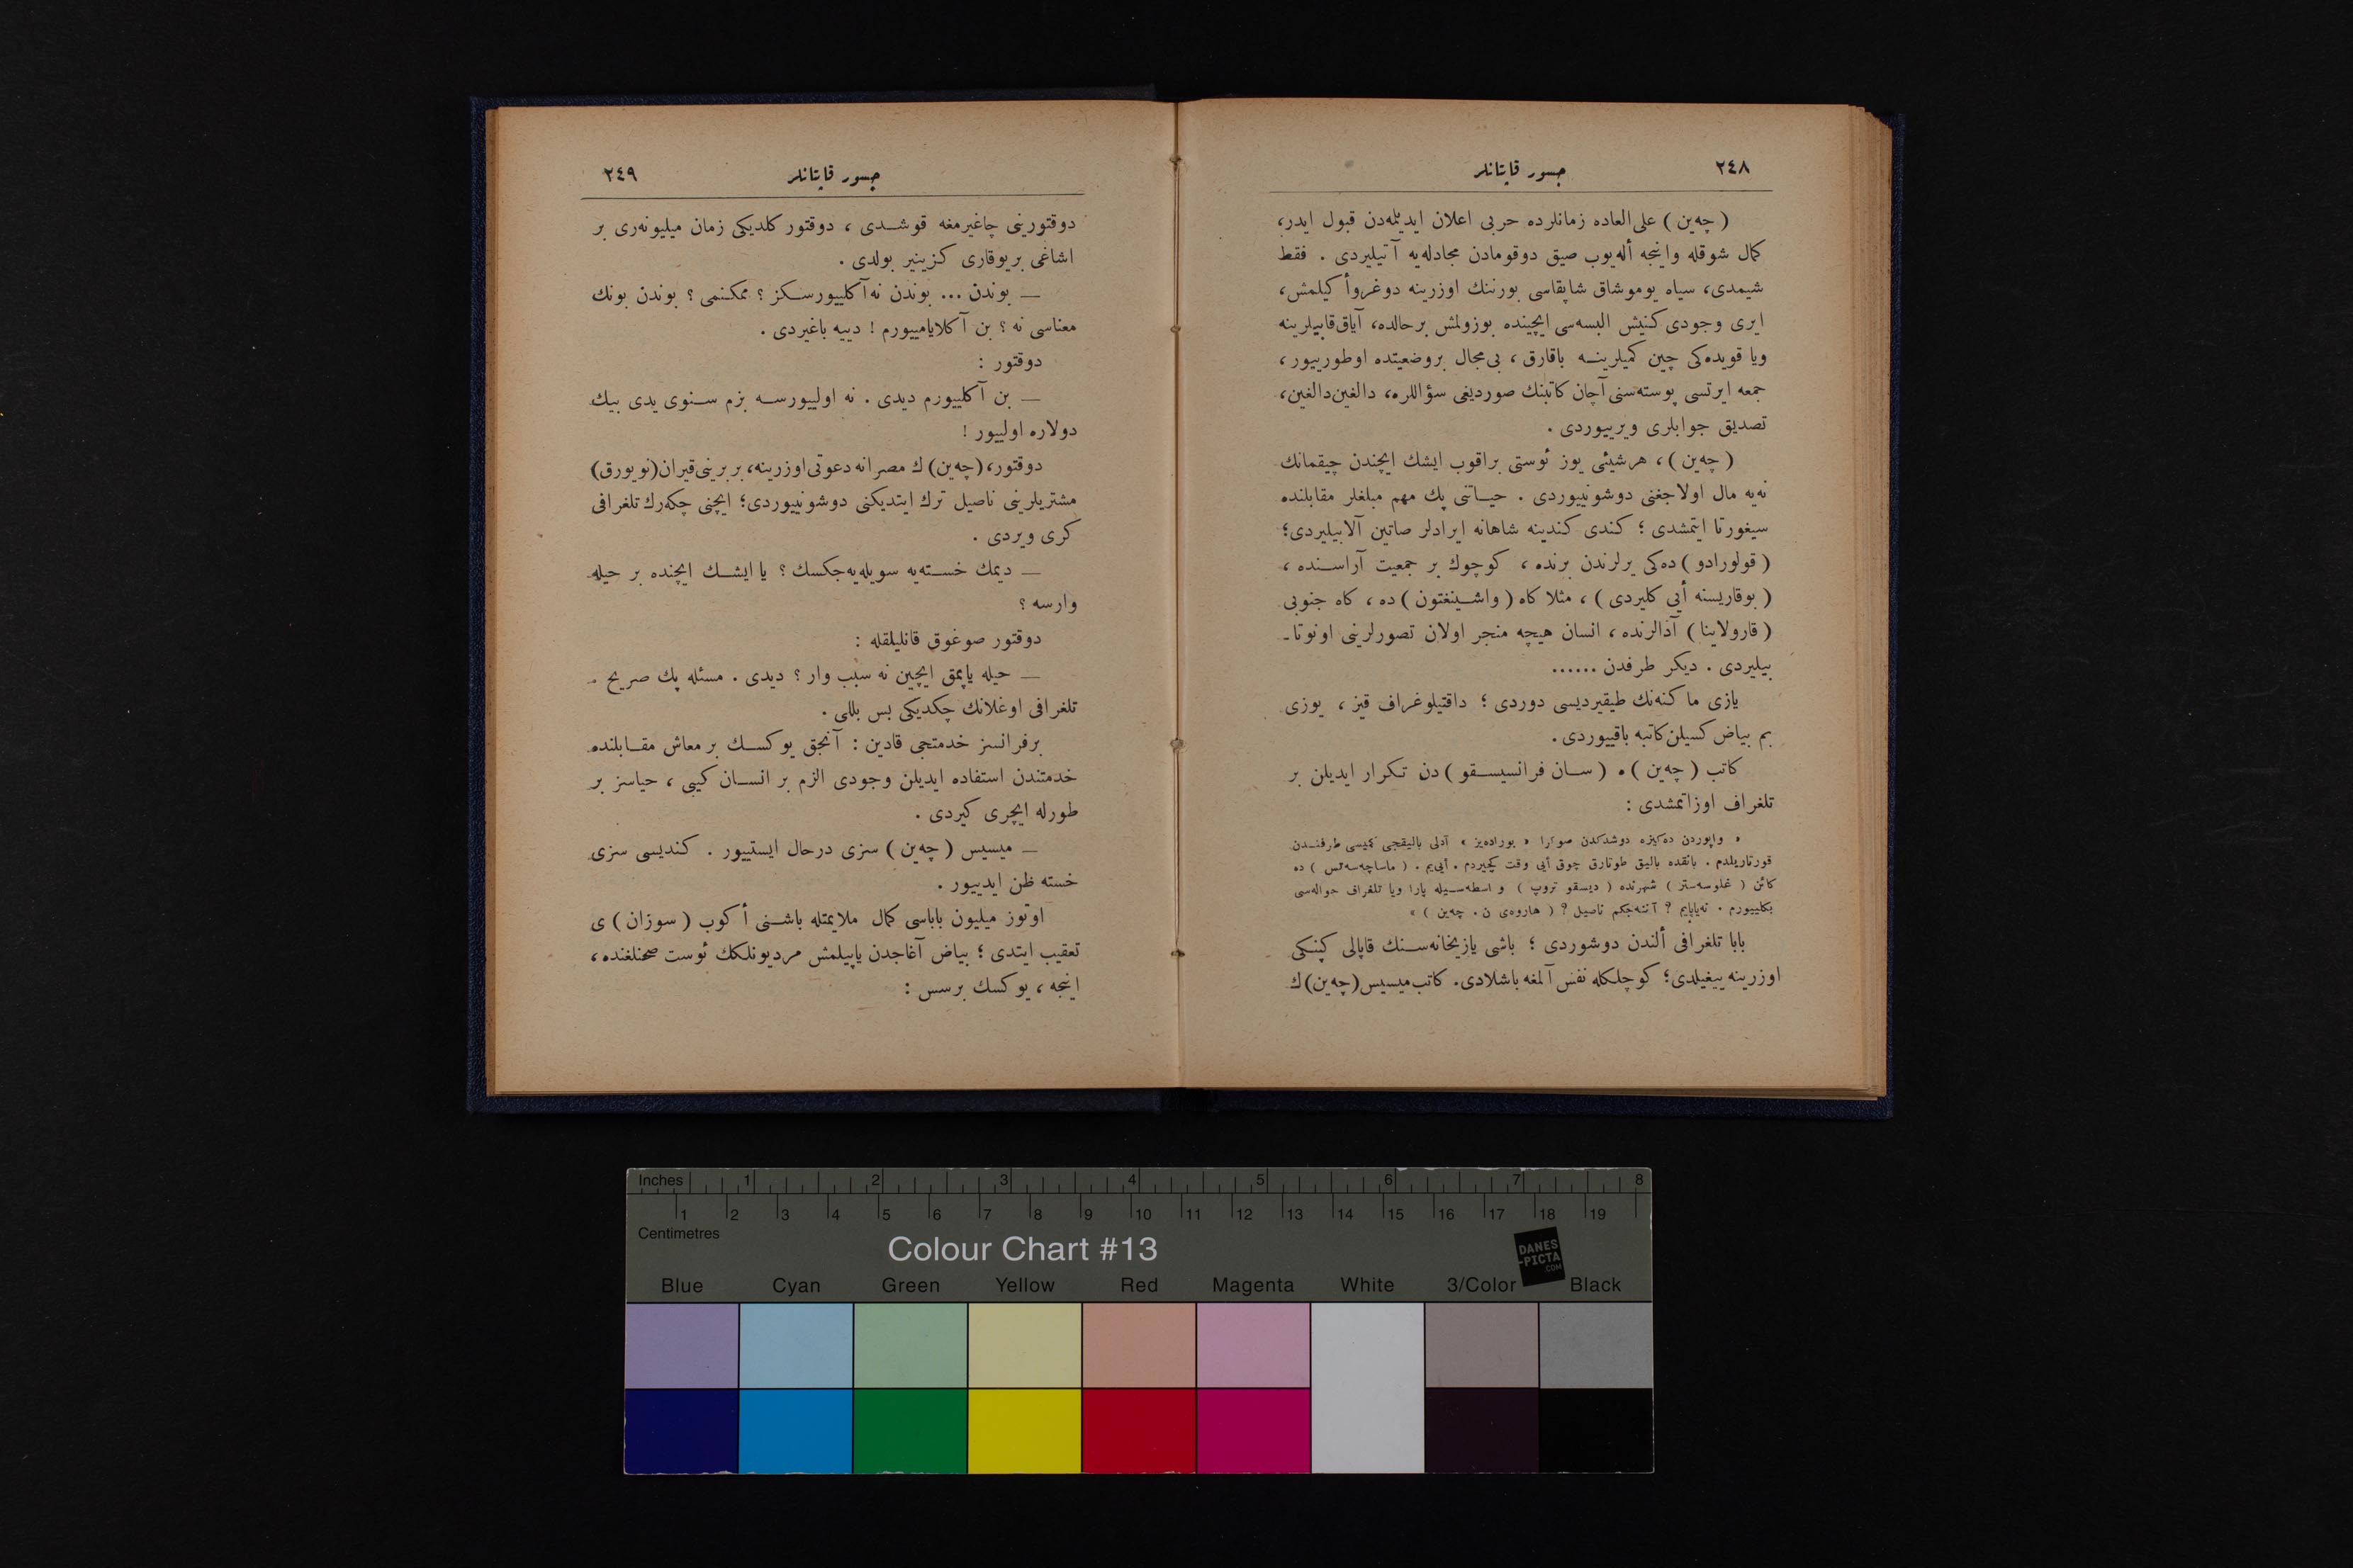 ٢٤٨ جسور قاپتانلر
(چەین) علی‌العاده زمانلرده حربی اعلان ایدیلمەدن قبول ایدر،
کمال شوقله واینجه ألەیوب صیق دوقومادن مجادلەیه آتیلیردی . فقط
شیمدی، سیاه یوموشاق شاپقاسی بورننك اوزرینه دوغروأ کیلمش،
ایری وجودی کنیش البسەسی ایچینده بوزولمش برحالده، آیاق‌قاپیلرینه
ویا قویدەکی چین کمیلرینه باقارق ، بی‌مجال بروضعیتده اوطورییور ،
جمعه ایرتسی پوستەسنی آچان کاتبنك صوردیغی سؤاللره، دالغین‌دالغین،
تصدیق جوابلری ویرییوردی .
(چەین) ، هرشیئی یوز ئوستی براقوب ایشك ایچندن چیقمانك
نەیه مال اولاجغنی دوشونییوردی . حیاتنی پك مهم مبلغلر مقابلنده
سیغورتا ایتمشدی ؛ کندی کندینه شاهانه ایرادلر صاتین آلابیلیردی؛
(قولورادو) دەکی یرلرندن برنده ، کوچوك بر جمعیت آراسنده ،
(بوقاریسنه أیی کلیردی) ، مثلا کاه (واشینغتون) ده ، کاه جنوبی
(قارولاینا) آدالرنده ، انسان هیچه منجر اولان تصورلرینی اونوتا-
بیلیردی . دیکر طرفدن ......
یازی ماکنەنك طیقیردیسی دوردی ؛ داقتیلوغراف قیز ، یوزی
بم بیاض کسیلن کاتبه باقییوردی .
کاتب (چەین) ه (سان فرانسیسقو) دن تکرار ایدیلن بر
تلغراف اوزاتمشدی :
« واپوردن دەکیزه دوشدکدن صوکرا « بورادەیز » آدلی بالیقجی کمیسی طرفندن
قورتاریلدم . بانقده بالیق طوتارق چوق أیی وقت کچیردم . أیی‌یم . (ماساچەسەتس) ده
کائن (غلوسەستر) شهرنده (دیسقو تروپ) واسطەسیله پارا ویا تلغراف حوالەسی
بکلییورم . نەیاپایم ? آننەجکم ناصیل ? (هاروەی ن . چەین) »
بابا تلغرافی ألندن دوشوردی ؛ باشی یازیخانەسنك قاپالی کپنکی
اوزرینه ییغیلدی؛ کوچلکله نفس آلمغه باشلادی. کاتب میسیس(چەین)ك
٢٤٩ جسور قاپتانلر
دوقتورینی چاغیرمغه قوشدی ، دوقتور کلدیکی زمان میلیونەری بر
اشاغی بریوقاری کزینیر بولدی .
— بوندن ... بوندن نه آکلییورسکز ؟ ممکنمی ؟ بوندن بونك
معناسی نه ؟ بن آکلایامییورم ! دییه باغیردی .
دوقتور :
— بن آکلییورم دیدی . نه اولییورسه بزم سنوی یدی بیك
دولاره اولییور !
دوقتور، (چەین)ك مصرانه دعوتی اوزرینه، بربرینی قیران(نویورق)
مشتریلرینی ناصیل ترك ایتدیکنی دوشونییوردی؛ ایچنی چکەرك تلغرافی
کری ویردی .
— دیمك خستەیه سویلەیەجکسك ؟ یا ایشك ایچنده بر حیله
وارسه ؟
دوقتور صوغوق قانلیلقله :
— حیله یاپمق ایچین نه سبب وار ؟ دیدی . مسئله پك صریح .
تلغرافی اوغلانك چکدیکی بس بللی .
برفرانسز خدمتجی قادین : آنجق یوکسك بر معاش مقابلنده
خدمتندن استفاده ایدیلن وجودی الزم بر انسان کیبی ، حیاسز بر
طورله ایچری کیردی .
— میسیس (چەین) سزی درحال ایستییور . کندیسی سزی
خسته ظن ایدییور .
اوتوز میلیون باباسی کمال ملایمتله باشنی أکوب (سوزان) ی
تعقیب ایتدی ؛ بیاض آغاجدن یاپیلمش مردیونلکك ئوست صحنلغنده ،
اینجه ، یوکسك برسس :
Inches 1 2 3 4 5 6 7 8
1 2 3 4 5 6 7 8 9 10 11 12 13 14 15 16 17 18 19
Centimetres
Colour Chart #13
DANES
-PICTA
.COM
Blue Cyan Green Yellow Red Magenta White 3/Color Black